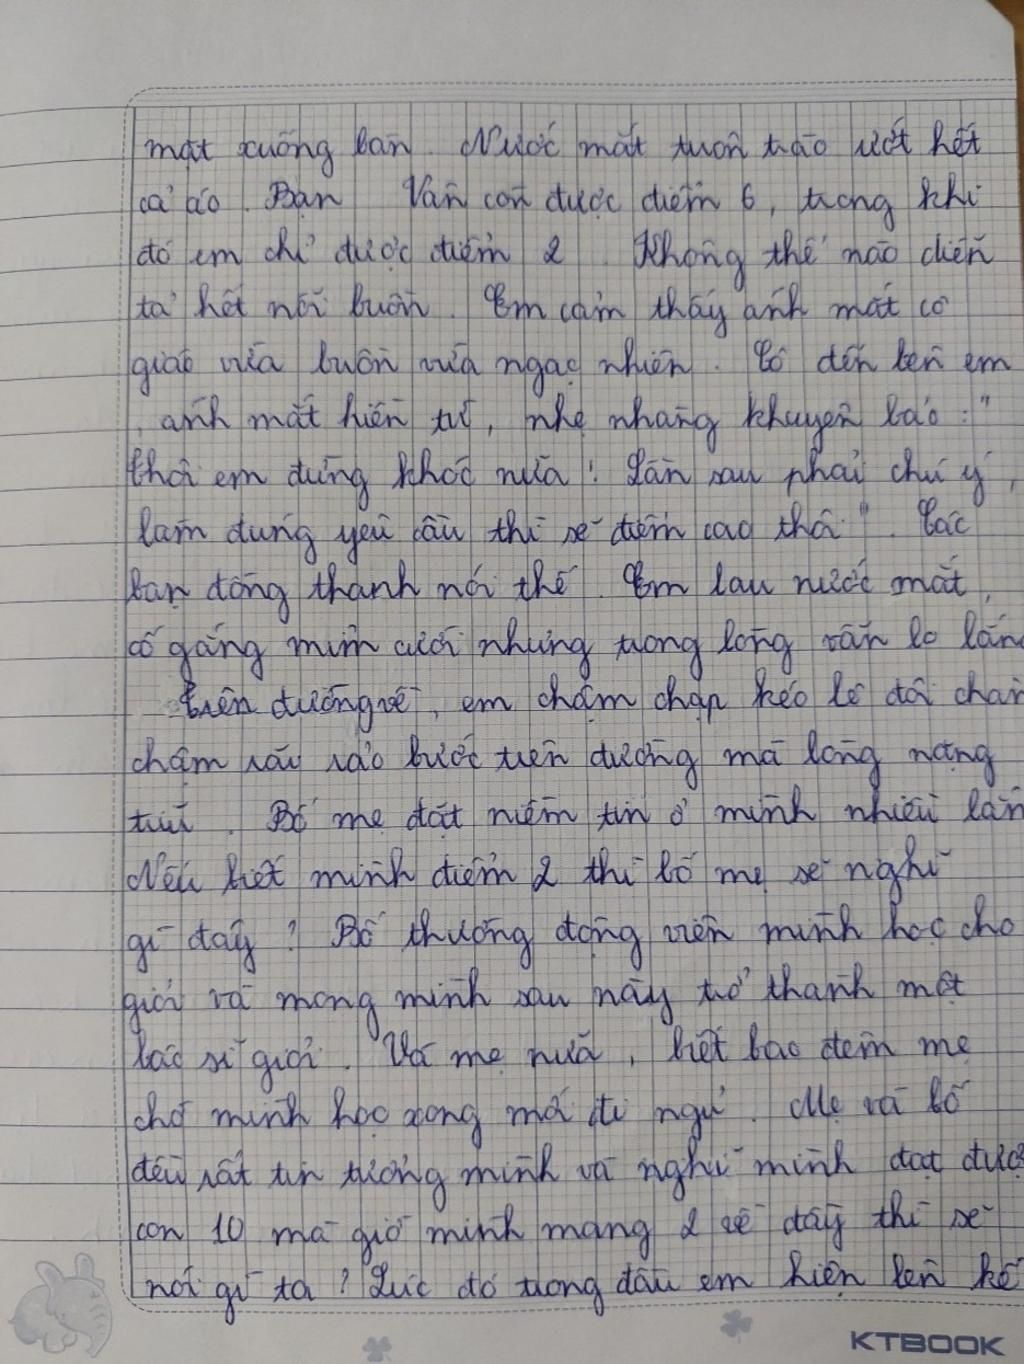 mặt xuống bàn. Nước mắt tuôn trào ướt hết
cả áo. Bạn Vân còn được điểm 6, trong khi
đó em chỉ được điểm 2. Không thể nào diễn
tả hết nỗi buồn. Em cảm thấy ánh mắt cô
giáo vừa buồn vừa ngạc nhiên. Cô đến bên em
, ánh mắt hiền từ, nhẹ nhàng khuyên bảo: "
thôi em đừng khóc nữa! Lần sau phải chú ý,
làm đúng yêu cầu thì sẽ điểm cao thôi". Các
bạn đồng thanh nói thế. Em lau nước mắt,
cố gắng mỉm cười nhưng trong lòng vẫn lo lắng
Trên đường về, em chậm chạp kéo lê đôi chân
chậm rãi rảo bước trên đường mà lòng nặng
trĩu. Bố mẹ đặt niềm tin ở mình nhiều lắm
Nếu biết mình điểm 2 thì bố mẹ sẽ nghĩ
gì đây? Bố thường động viên mình học cho
giỏi và mong mình sau này trở thành một
bác sĩ giỏi. Và mẹ nữa, biết bao đêm mẹ
chờ mình học xong mới đi ngủ. Mẹ và bố
đều rất tin tưởng mình và nghĩ mình đạt được
con 10 mà giờ mình mang 2 về đây thì sẽ
nói gì ta? Lúc đó trong đầu em hiện lên kế
KTBOOK